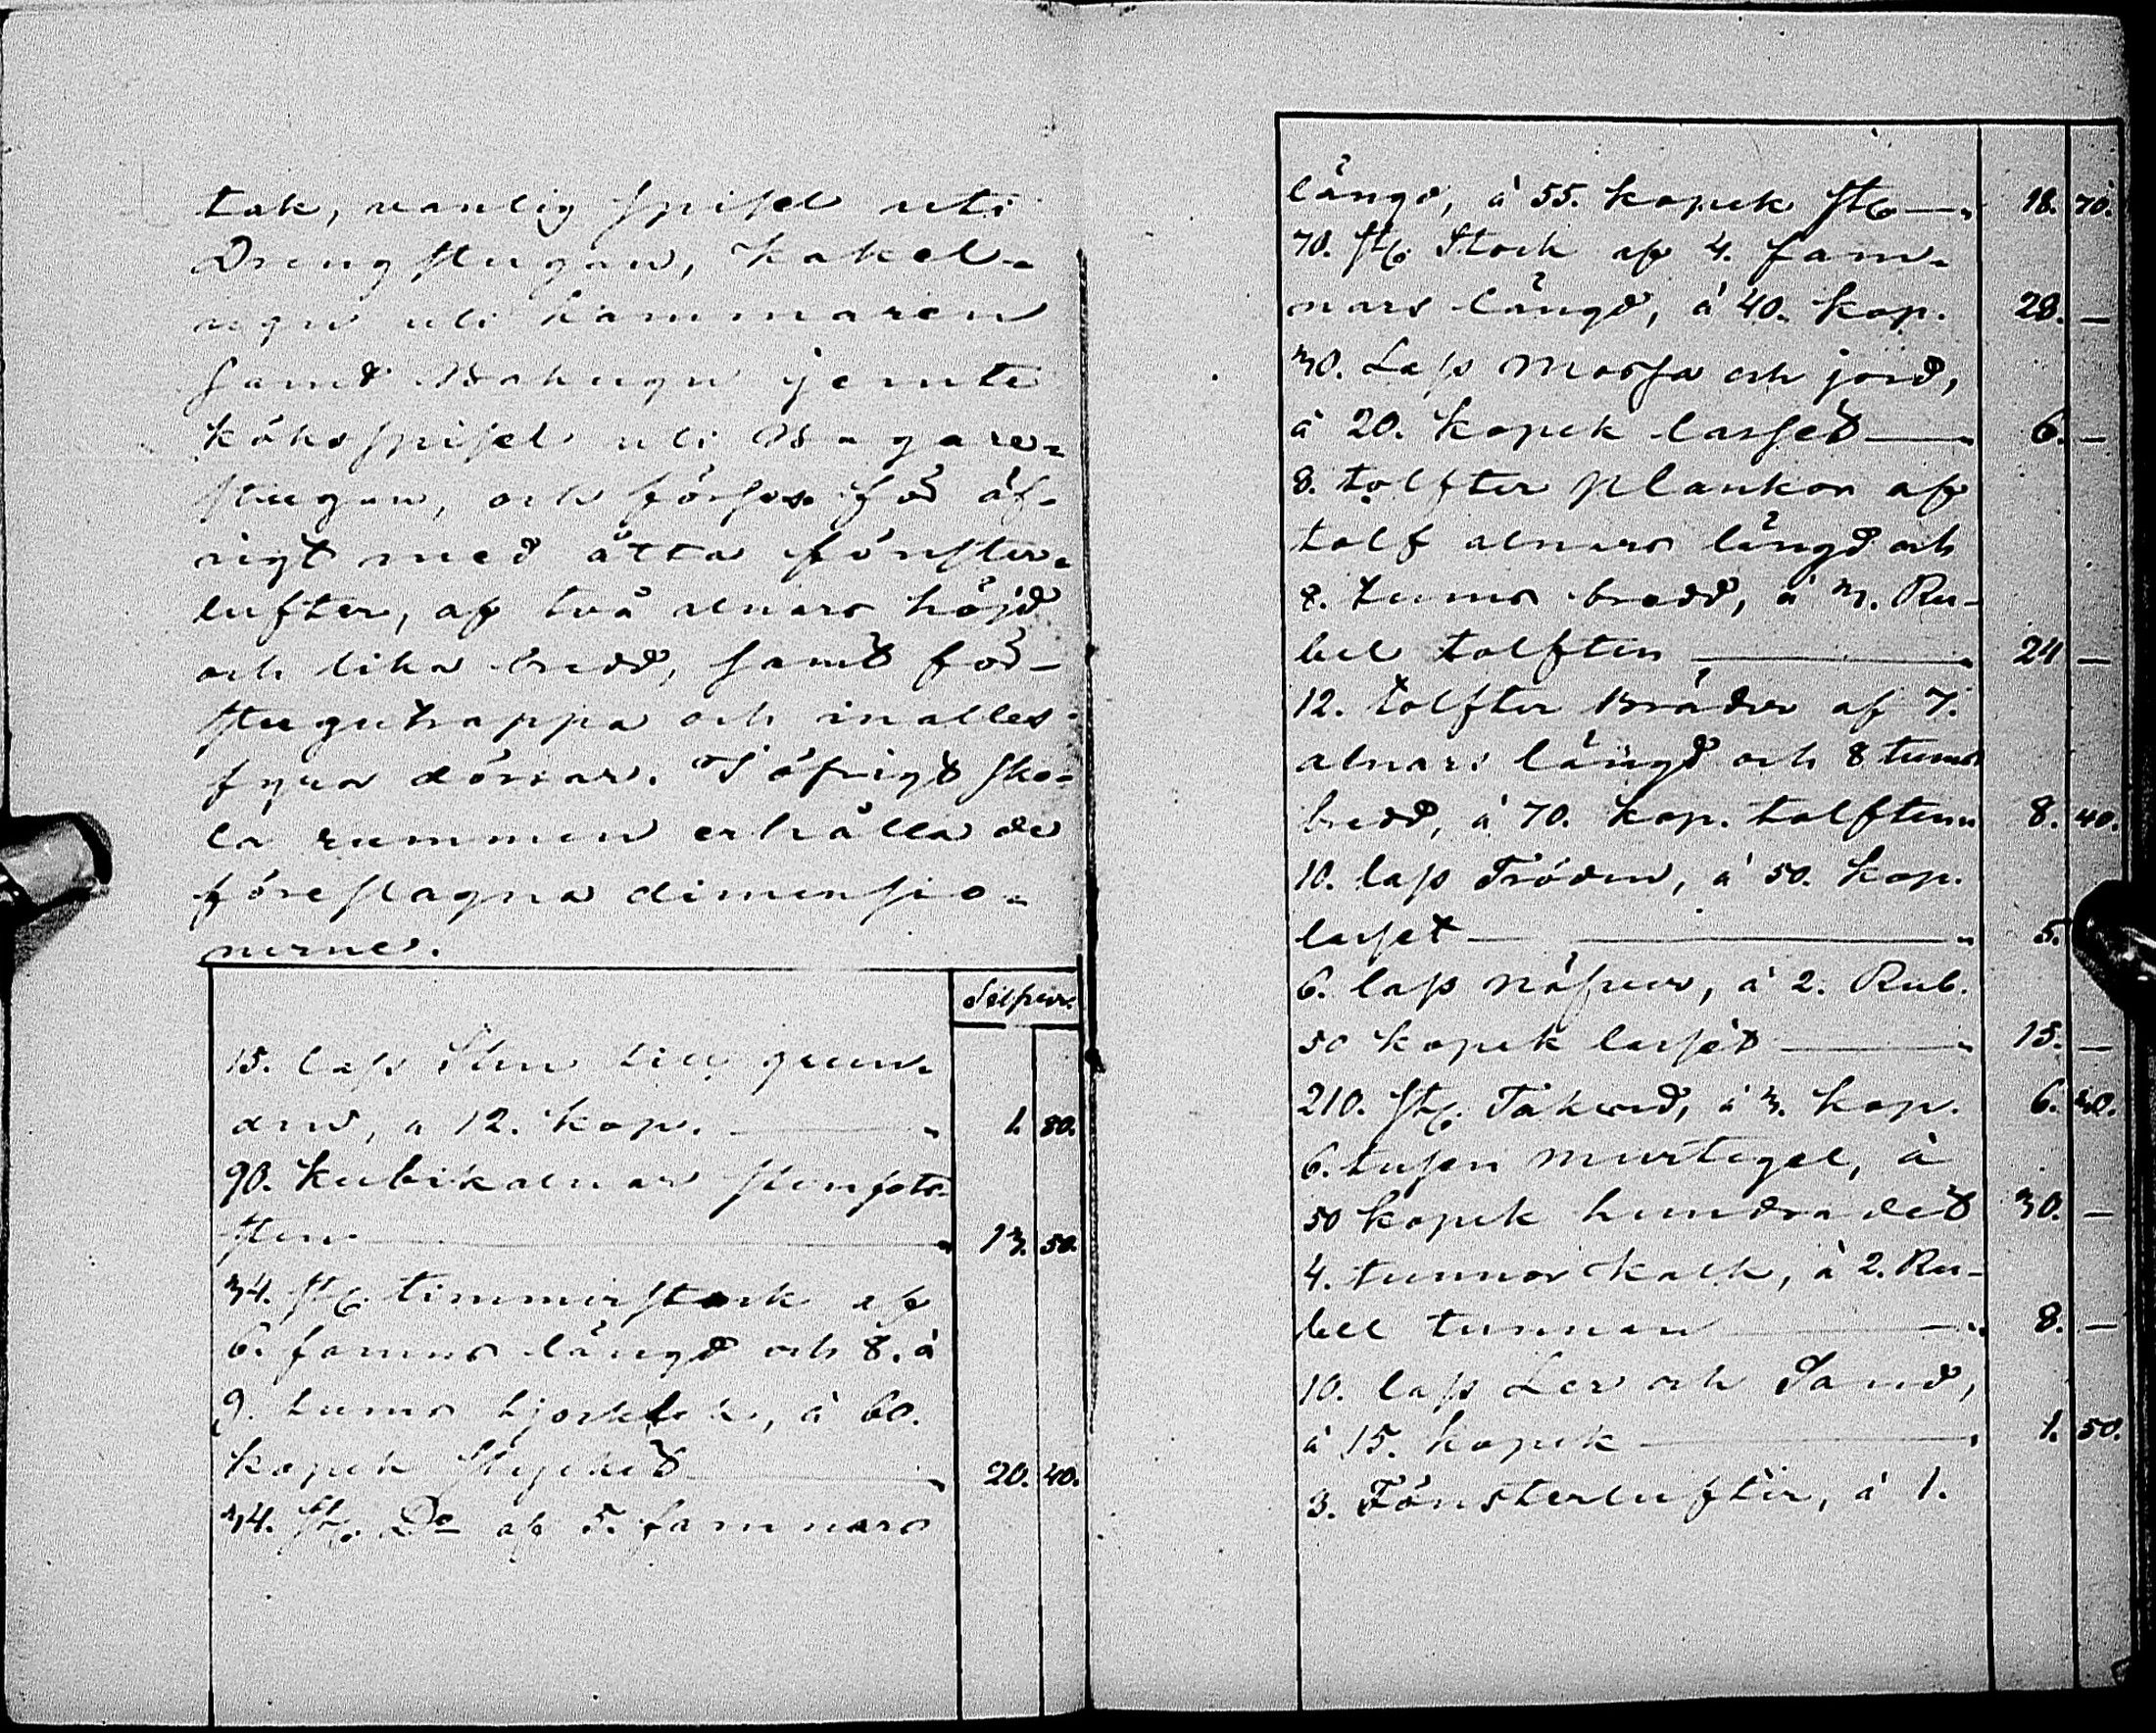 tak, vanlig spisel uti
Drengstugan, Kakel-
ugn uti kammaren
samt Bakugn jemte
köksspisel uti Bagare-
stugan, och förses för öf-
rigt med åtta fönster-
lufter, af två alnars höjd
och lika bredd, samt för-
stugutrappa och inalles
fyra dörrar. I öfrigt sko-
la rummen erhålla de
föreslagna dimensio-
nerne.
Silfver.
15. lass Sten till grun-
den, a 12. kop. 1. 80.
90. kubikalnar stenfots-
sten 13. 50.
34. st. timmerstock af
6. famns längd och 8. à
9. tums tjocklek, à 60.
kopek stycket 20. 40.
34. st. Do af 5. famnars
längd, à 55. kopek st. 18. 70.
70. st. Stock af 4. fam-
nars längd, à 40. kop. 28. —
30. Lass Mossa och jord,
à 20. kopek lasset 6. —
8. tolfter plankor af
tolf alnars längd och
8. tums bredd, à 3. Ru-
bel tolften 24 —
12. tolfter Bräder af 7.
alnars längd och 8 tums
bredd, à 70. kop. tolften 8. 40.
10. lass Tröden, à 50. kop.
lasset 5.
6. lass näfver, à 2. Rub.
50 kopek lasset 15. —
210. st. Takved, à 3. kop. 6. 30.
6. tusen murtegel, à
50 kopek hundradet 30. —
4. tunnor kalk, à 2. Ru-
bel tunnan 8. —
10. lass Ler och Sand,
à 15. kopek 1. 50.
3. Fönsterlufter, à 1.